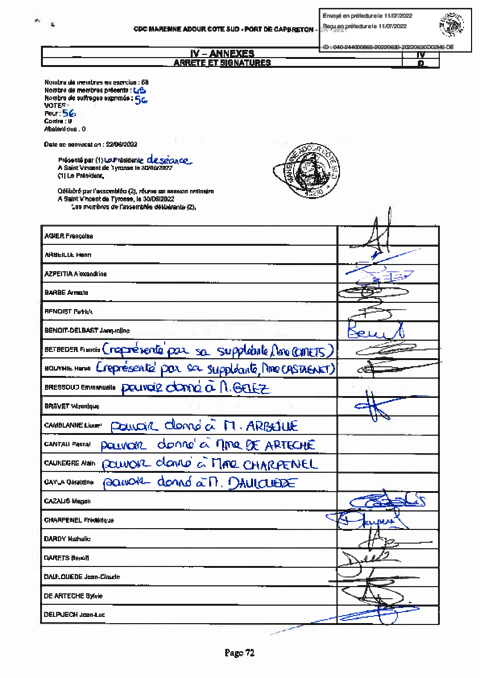 Envoyé en préfecture le 11/07/2022
Reçu en préfecture le 11/07/2022
ID : 040-244000865-20220630-20220630D02
CDC MAREMNE ADOUR COTE SUD - PORT DE CAPBRETON -
IV – ANNEXES IV
ARRETE ET SIGNATURES D
Nombre de membres en exercice : 58
Nombre de membres présents : 48
Nombre de suffrages exprimés : 56
VOTES :
Pour : 56
Contre : 0
Abstentions : 0
Date de convocation : 22/06/2022
Présenté par (1) Le Présidente de séance
A Saint Vincent de Tyrosse le 30/06/2022
(1) Le Président,
Délibéré par l'assemblée (2), réunie en session ordinaire
A Saint Vincent de Tyrosse, le 30/06/2022
Les membres de l'assemblée délibérante (2),
MAREMNE ADOUR COTE SUD
AGIER Françoise
ARBEILLE Henri
AZPEITIA Alexandrine
BARBE Armelle
BENOIST Patrick
BENOIT-DELBAST Jacqueline
BETBEDER Francis (représenté par sa suppléante, Mme COMETS)
BOUYRIE Hervé (représenté par sa suppléante, Mme CASTAGNET)
BRESSOUD Emmanuelle pouvoir donné à M. GELEZ
BREVET Véronique
CAMBLANNE Lionel pouvoir donné à M. ARBEILLE
CANTAU Pascal pouvoir donné à Mme DE ARTECHE
CAUNEGRE Alain pouvoir donné à Mme CHARPENEL
CAYLA Géraldine pouvoir donné à M. DAULOUEDE
CAZALIS Magali
CHARPENEL Frédérique
DARDY Nathalie
DARETS Benoît
DAULOUEDE Jean-Claude
DE ARTECHE Sylvie
DELPUECH Jean-Luc
Page 72